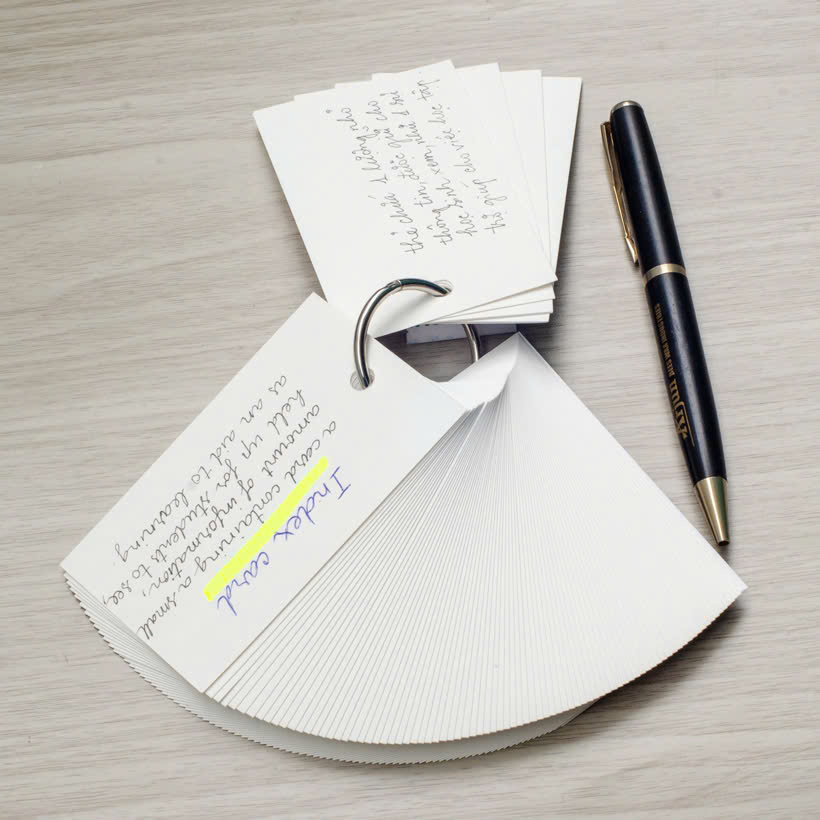 thẻ chứa 1 lượng nhỏ
thông tin, được giữ cho
học sinh xem, như 1 sự
trợ giúp cho việc học tập.
Index card
a card containing a small
amount of information,
held up for students to see,
as an aid to learning.